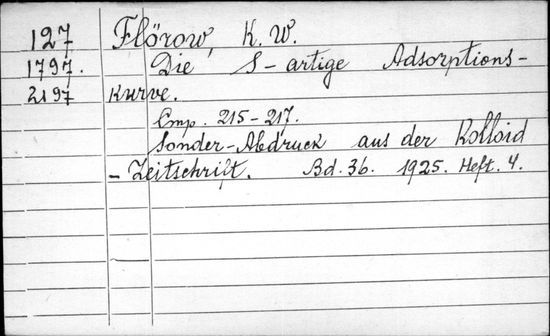 127 Flörow, K. W.
1797. Die S-artige Adsorptions-
2197 Kurve.
Стр. 215-217.
Sonder-Abdruck aus der Kolloid
- Zeitschrift. Bd. 36. 1925. Heft. 4.